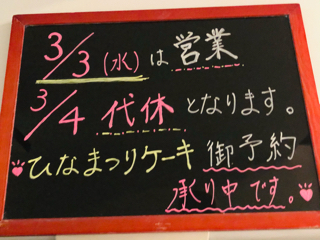 3/3(水)は営業
3/4代休となります。
ひなまつりケーキ御予約
承り中です。